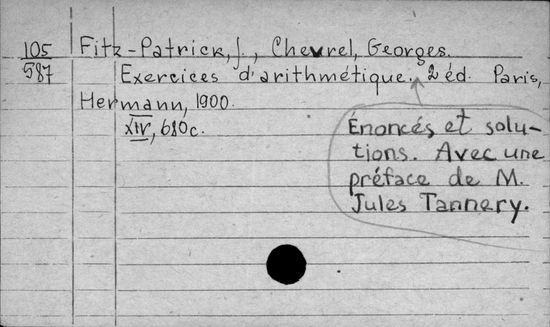 105
587
Fitz-Patrick, J., Chevrel, Georges.
Exercices d'arithmétique. 2 éd. Paris,
Hermann, 1900.
XIV, 680c.
Énoncés et solu-
tions. Avec une
préface de M.
Jules Tannery.